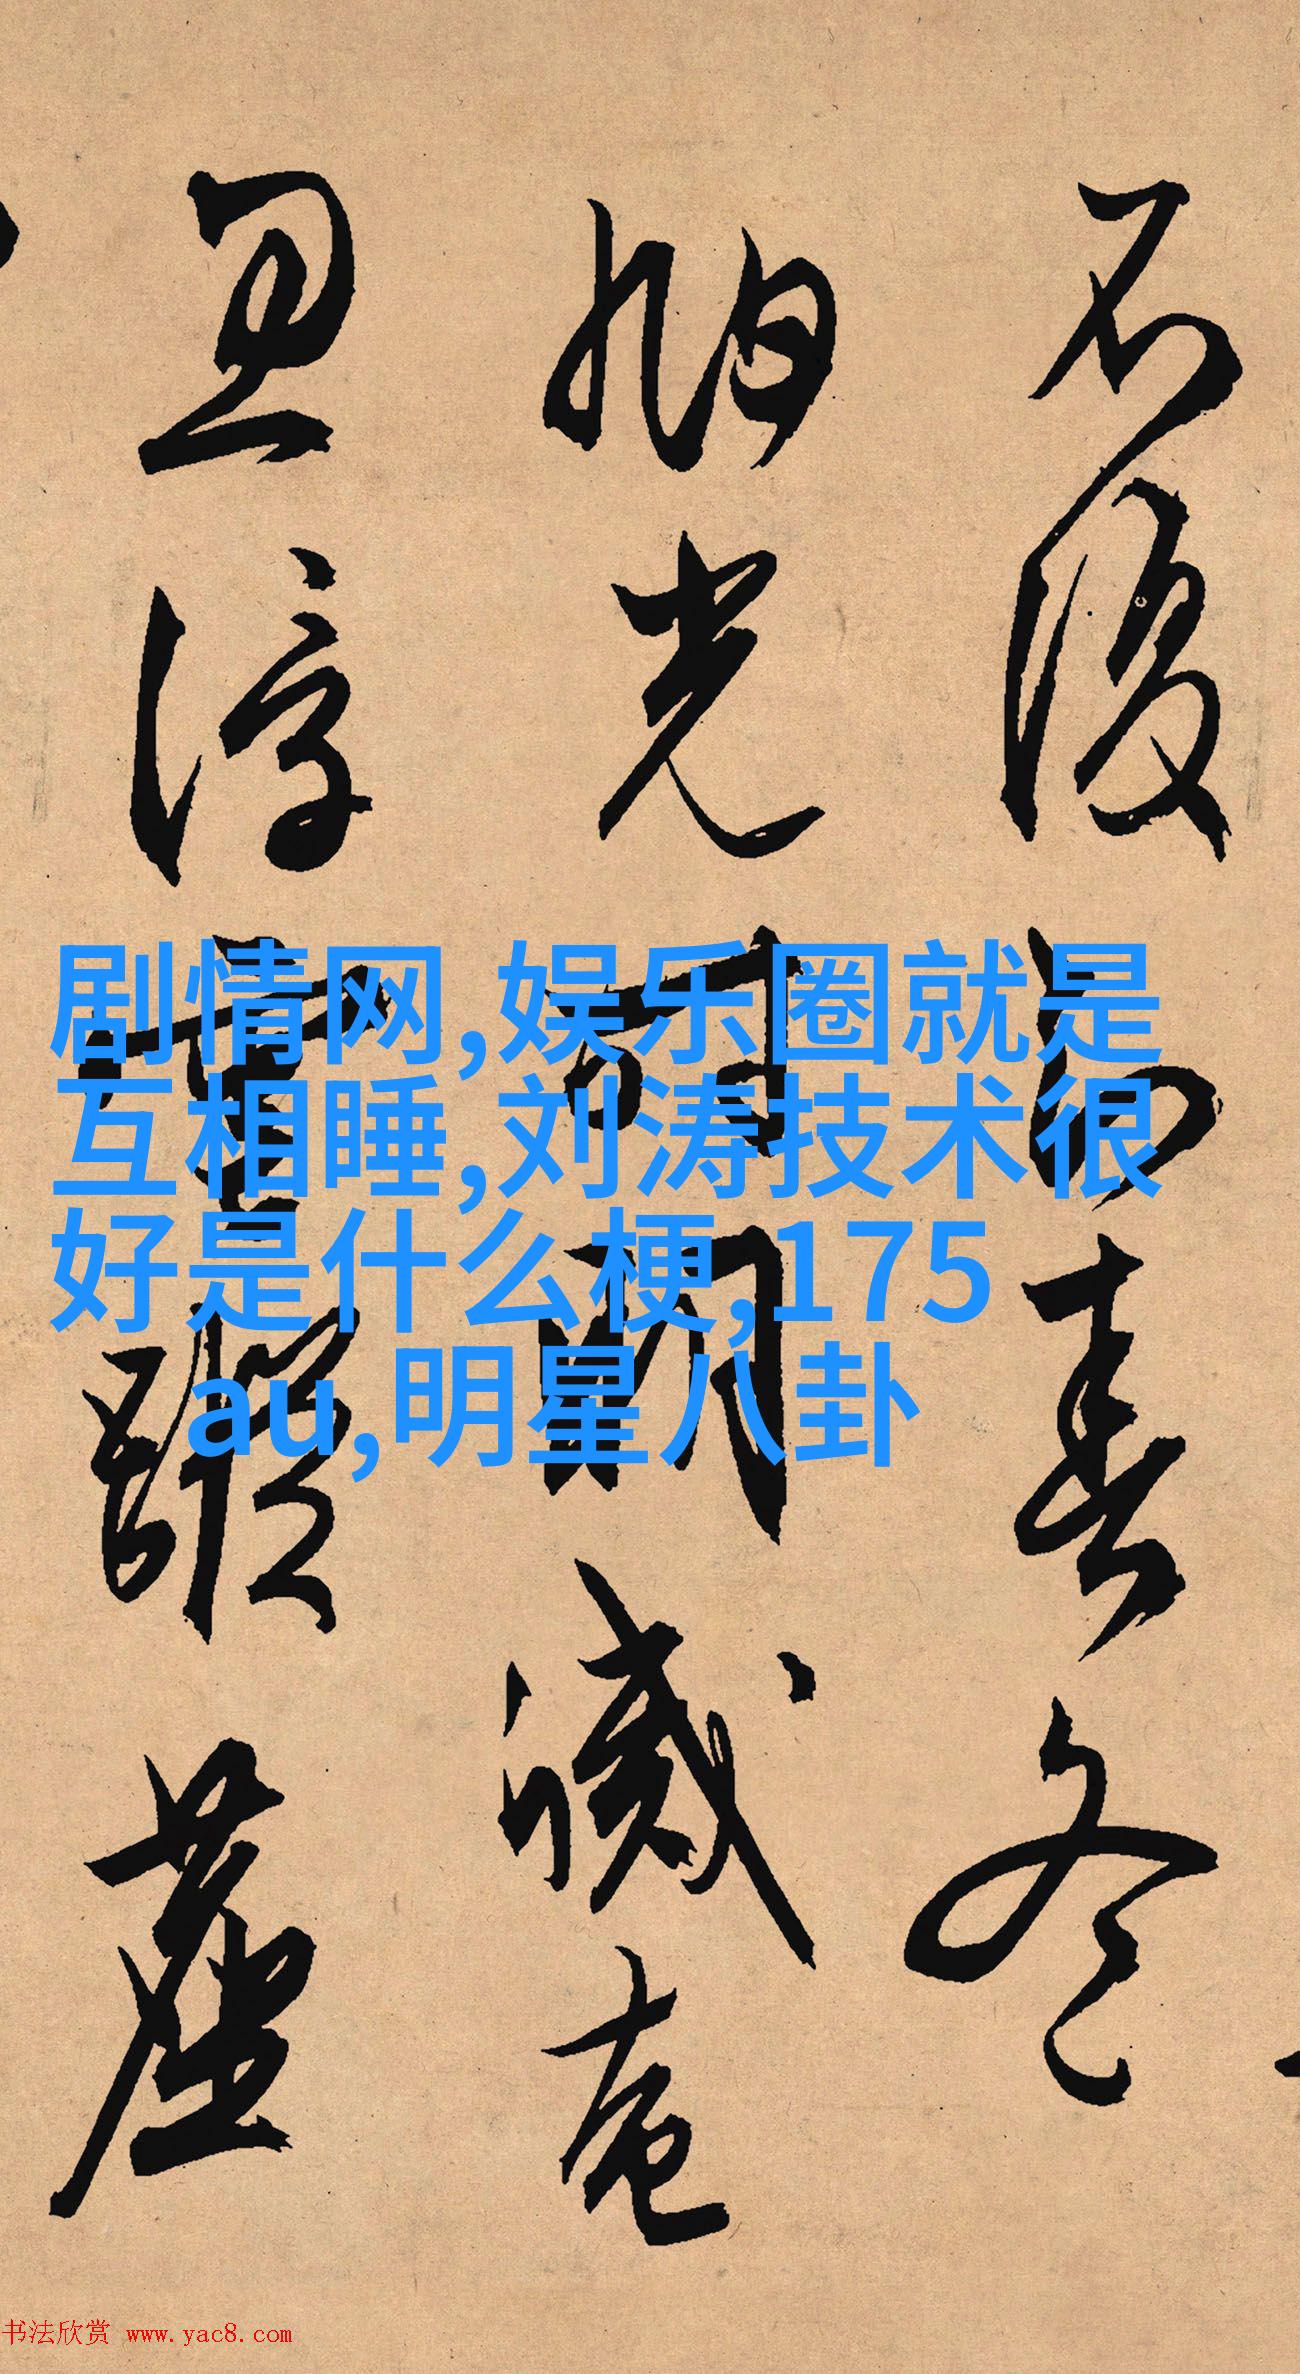 不復春冬
光時明滅奄
忽雲
剧情网,娱乐圈就是
互相睡,刘涛技术很
好是什么梗,175
au,明星八卦
书法欣赏 www.yac8.com